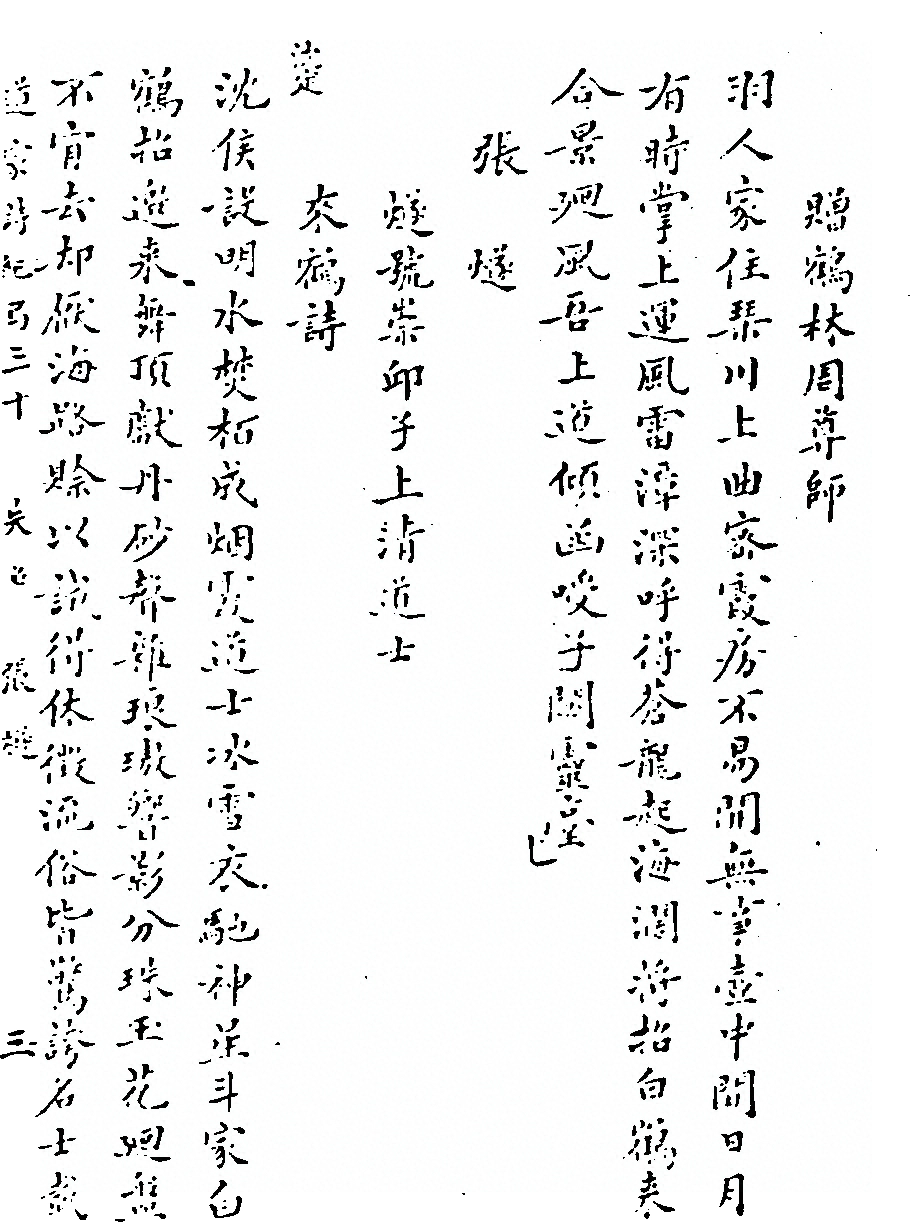 贈鶴林周尊師
羽人家住琴川上曲密霞房不易開無事壺中閒日月
有時掌上運風雷潭深呼得蒼龍起海濶將招白鶴來
合景廻風吾上道傾函唉子關靈臺
張 燧
燧號崇邱子上清道士
來鶴詩
沈侯設明水焚栢成烟霞道士冰雪衣馳神星斗家白
鶴招邀來舞頂獻丹砂聲雜琅璈響影分珠玉花廻盤
不肯去却厭海路賒以誠得休徵流俗皆驚誇名士盛
道家詩紀 三十 張 三